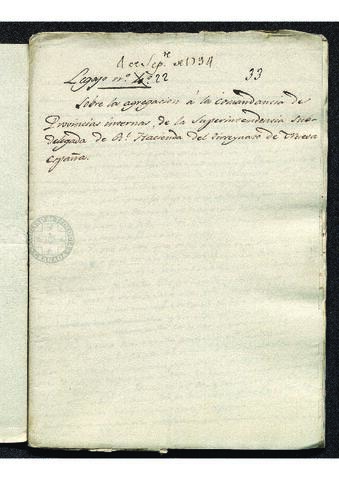 1 de Sep.re de 1794
Legajo nº. 22 33
Sobre la agregacion á la comandancia de
Provincias internas de la Superintendencia Sub-
delegada de Rl. Hacienda del virreynato de Nueva
España.